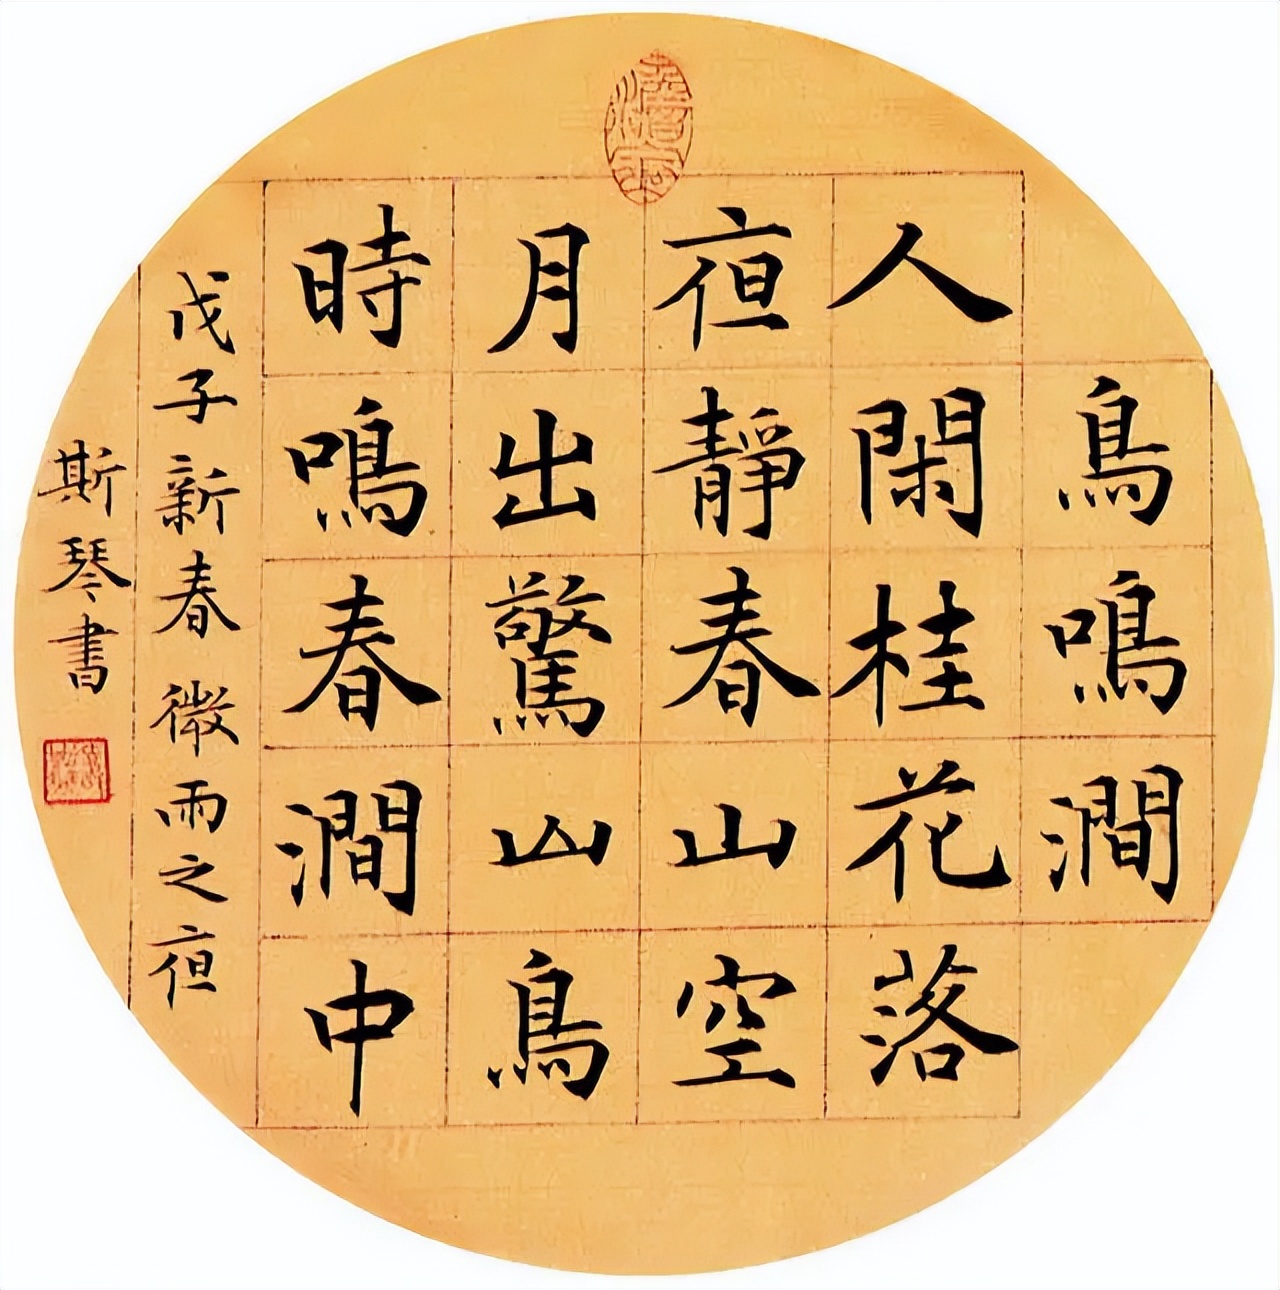 鳥鳴澗
人閑桂花落
亱靜春山空
月出驚山鳥
時鳴春澗中
戊子新春微雨之亱
斯琴書